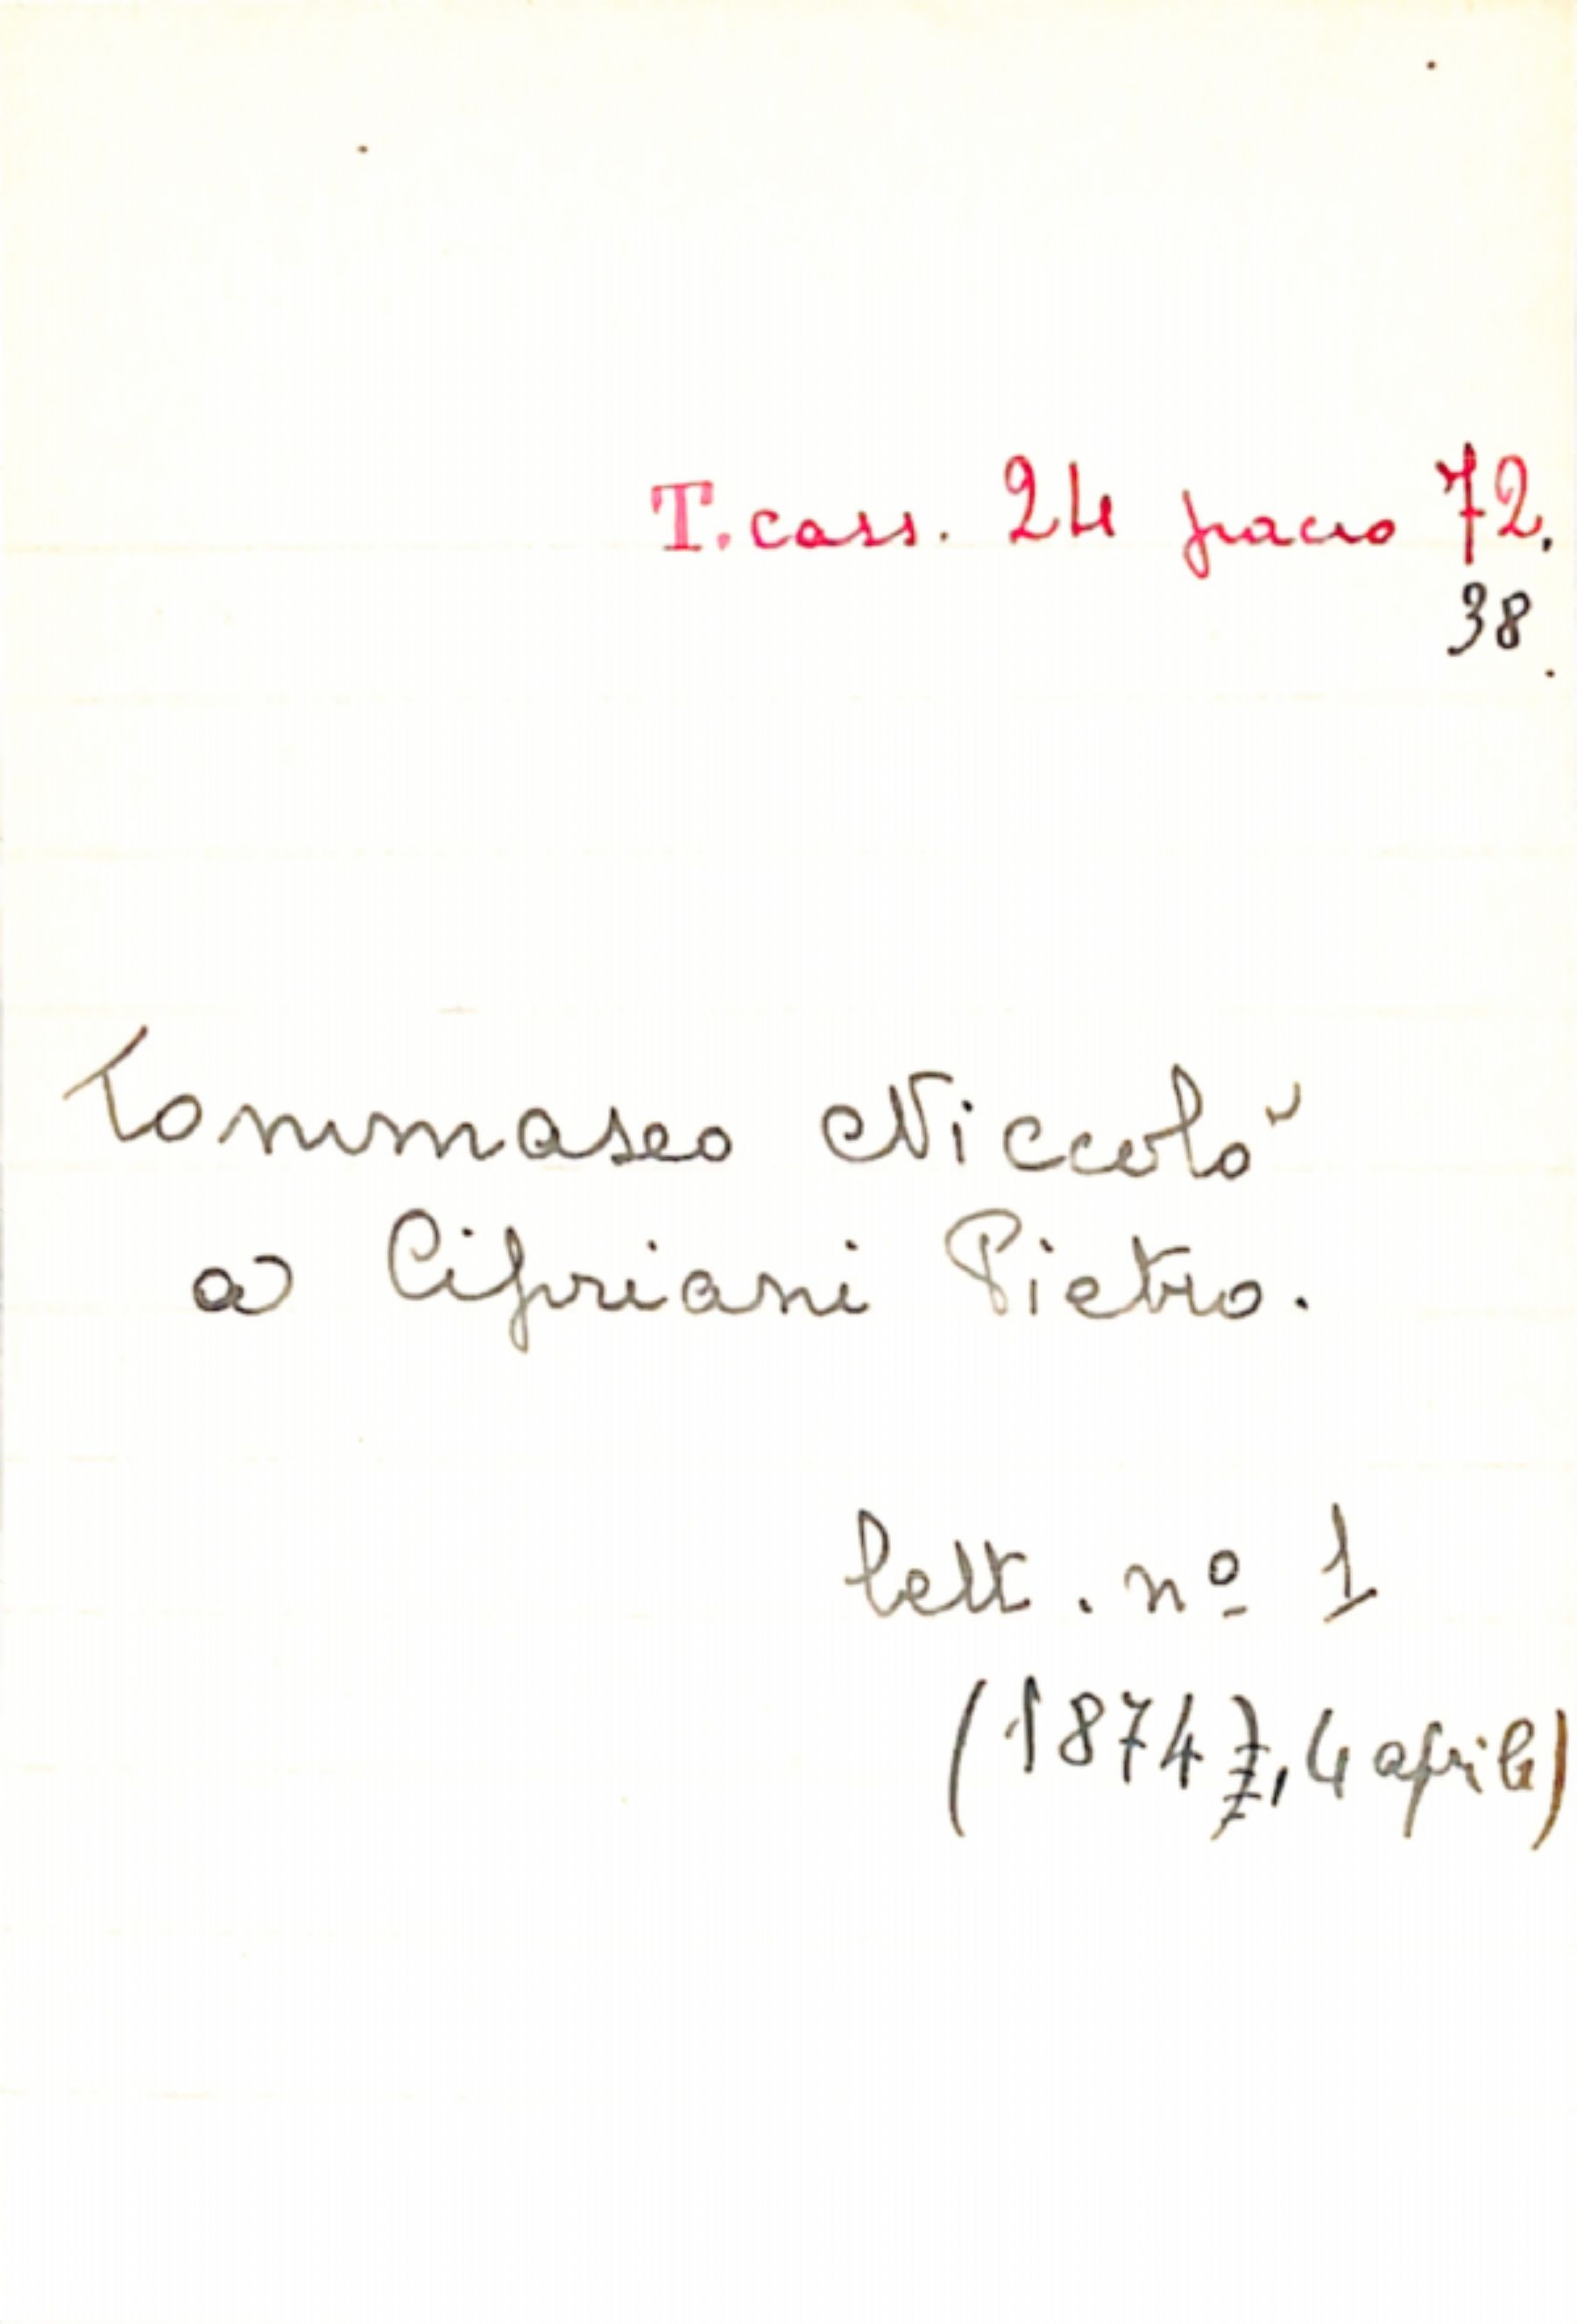 T. cass. 24 pacco 72.
38
Tommaseo Niccolò
a Cipriani Pietro.
lett. nº 1
(1874), 4 aprile)